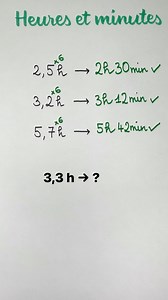 Heures et minutes
×6
2,5h → 2h 30min ✓
×6
3,2h → 3h 12min ✓
×6
5,7h → 5h 42min ✓
3,3 h → ?